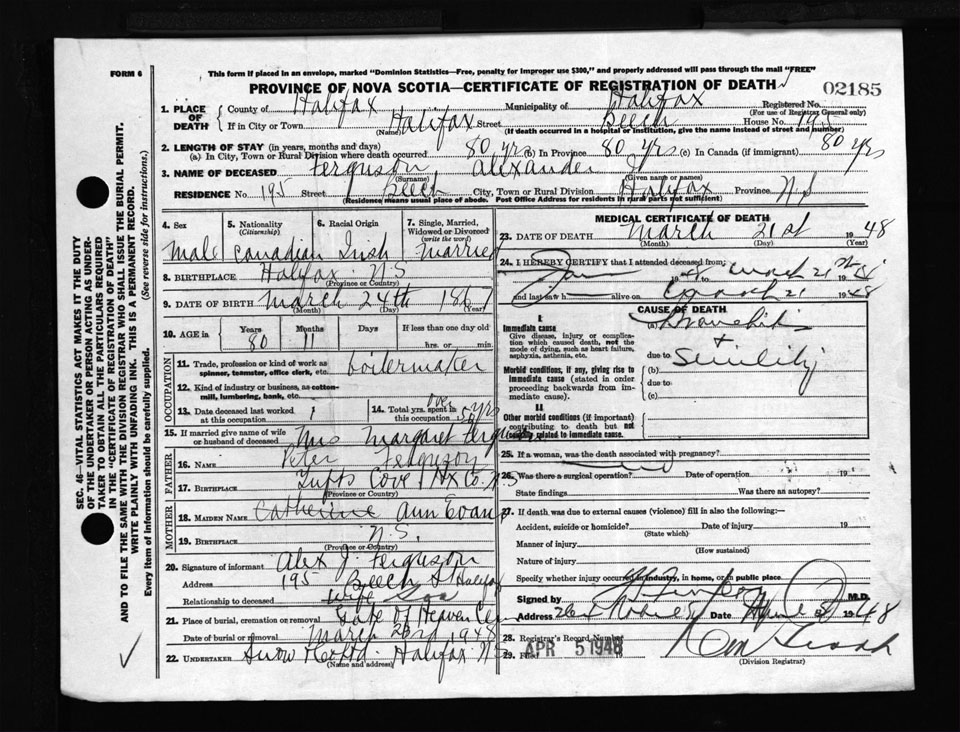 FORM 6
This form if placed in an envelope, marked "Dominion Statistics—Free, penalty for improper use $300," and properly addressed will pass through the mail "FREE"
PROVINCE OF NOVA SCOTIA—CERTIFICATE OF REGISTRATION OF DEATH
02185
1. PLACE OF DEATH
County of Halifax Municipality of Halifax Registered No.
(For use of Registrar General only)
If in City or Town Halifax Street Beech House No. 195
(Name) (If death occurred in a hospital or institution, give the name instead of street and number)
2. LENGTH OF STAY (in years, months and days)
(a) In City, Town or Rural Division where death occurred 80 yrs (b) In Province 80 yrs (c) In Canada (if immigrant) 80 yrs
3. NAME OF DECEASED Ferguson Alexander J
(Surname) (Given name or names)
RESIDENCE No. 195 Street Beech City, Town or Rural Division Halifax Province N S
(Residence means usual place of abode. Post Office Address for residents in rural parts not sufficient)
4. Sex
5. Nationality (Citizenship)
6. Racial Origin
7. Single, Married, Widowed or Divorced (write the word)
Male Canadian Irish Married
8. BIRTHPLACE Halifax N.S.
(Province or Country)
9. DATE OF BIRTH March 24th 1867
(Month) (Day) (Year)
10. AGE in Years Months Days If less than one day old
80 11 hrs. or min.
OCCUPATION
11. Trade, profession or kind of work as spinner, teamster, office clerk, etc. boilermaker
12. Kind of industry or business, as cotton-mill, lumbering, bank, etc.
13. Date deceased last worked at this occupation
14. Total yrs. spent in this occupation over 50 yrs
15. If married give name of wife or husband of deceased Mrs Margaret Ferguson
FATHER
16. NAME Peter Ferguson
17. BIRTHPLACE Tufts Cove Hx Co. N.S
(Province or Country)
MOTHER
18. MAIDEN NAME Catherine Ann Evans
19. BIRTHPLACE N.S.
(Province or Country)
20. Signature of informant Alex J. Ferguson
Address 195 Beech St Halifax
Relationship to deceased Son
21. Place of burial, cremation or removal Gate of Heaven Cem
Date of burial or removal March 23rd 1948
22. UNDERTAKER Snow Halifax N.S
(Name and address)
MEDICAL CERTIFICATE OF DEATH
23. DATE OF DEATH March 21st 1948
(Month) (Day) (Year)
24. I HEREBY CERTIFY that I attended deceased from:
Jan 1948 to March 21 19
and last saw h alive on March 21 1948
CAUSE OF DEATH
I
Immediate cause
Give disease, injury or complication which caused death, not the mode of dying, such as heart failure, asphyxia, asthenia, etc.
(a) Bronchitis
+
due to
Morbid conditions, if any, giving rise to immediate cause (stated in order proceeding backwards from immediate cause).
(b) Senility
due to
(c)
II
Other morbid conditions (if important) contributing to death but not causally related to immediate cause.
25. If a woman, was the death associated with pregnancy?
26. Was there a surgical operation? Date of operation 19
State findings Was there an autopsy?
27. If death was due to external causes (violence) fill in also the following:—
Accident, suicide or homicide? Date of injury 19
(State which)
Manner of injury
(How sustained)
Nature of injury
Specify whether injury occurred in industry, in home, or in public place
Signed by M.D.
Address Date April 1948
28. Registrar's Record Number
29. Filed APR 5 1948
(Division Registrar)
SEC. 46—VITAL STATISTICS ACT MAKES IT THE DUTY
OF THE UNDERTAKER OR PERSON ACTING AS UNDER-
TAKER TO OBTAIN ALL THE PARTICULARS REQUIRED
IN THE "CERTIFICATE OF REGISTRATION OF DEATH"
AND TO FILE THE SAME WITH THE DIVISION REGISTRAR WHO SHALL ISSUE THE BURIAL PERMIT.
WRITE PLAINLY WITH UNFADING INK. THIS IS A PERMANENT RECORD.
Every item of information should be carefully supplied. (See reverse side for instructions.)